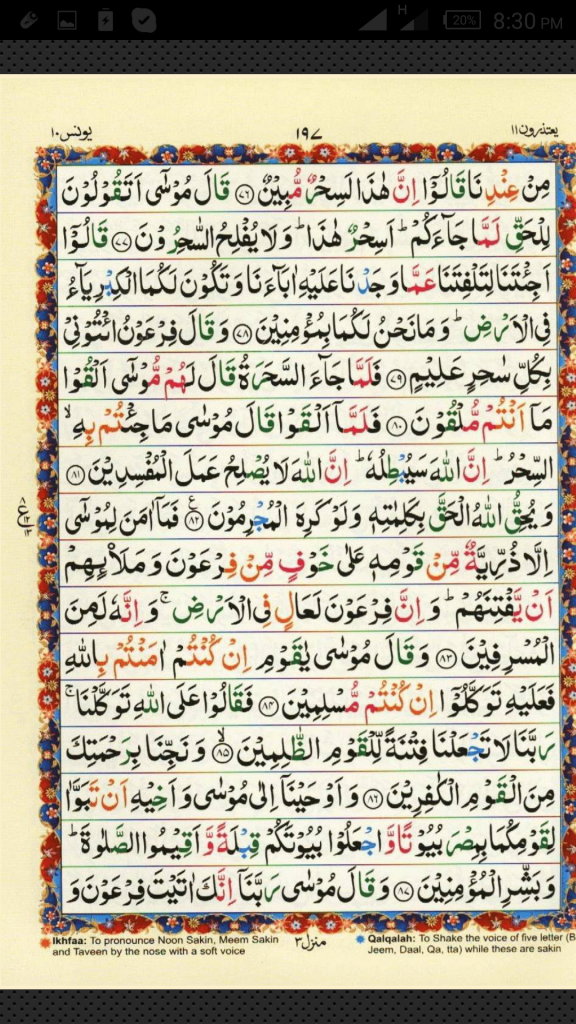 H 20% 8:30 PM
یونس ۱۰ ۱۹۷ یعتذرون ۱۱
مِنْ عِنْدِنَا قَالُوْۤا اِنَّ هٰذَا لَسِحْرٌ مُّبِیْنٌ ﴿۷۶﴾ قَالَ مُوْسٰۤی اَتَقُوْلُوْنَ
لِلْحَقِّ لَمَّا جَآءَكُمْ ؕ اَسِحْرٌ هٰذَا ؕ وَ لَا یُفْلِحُ السّٰحِرُوْنَ ﴿۷۷﴾ قَالُوْۤا
اَجِئْتَنَا لِتَلْفِتَنَا عَمَّا وَجَدْنَا عَلَیْهِ اٰبَآءَنَا وَ تَكُوْنَ لَكُمَا الْكِبْرِیَآءُ
فِی الْاَرْضِ ؕ وَ مَا نَحْنُ لَكُمَا بِمُؤْمِنِیْنَ ﴿۷۸﴾ وَ قَالَ فِرْعَوْنُ ائْتُوْنِیْ
بِكُلِّ سٰحِرٍ عَلِیْمٍ ﴿۷۹﴾ فَلَمَّا جَآءَ السَّحَرَةُ قَالَ لَهُمْ مُّوْسٰۤی اَلْقُوْا
مَاۤ اَنْتُمْ مُّلْقُوْنَ ﴿۸۰﴾ فَلَمَّاۤ اَلْقَوْا قَالَ مُوْسٰی مَا جِئْتُمْ بِهِ ۙ
السِّحْرُ ؕ اِنَّ اللّٰهَ سَیُبْطِلُهٗ ؕ اِنَّ اللّٰهَ لَا یُصْلِحُ عَمَلَ الْمُفْسِدِیْنَ ﴿۸۱﴾
وَ یُحِقُّ اللّٰهُ الْحَقَّ بِكَلِمٰتِهٖ وَ لَوْ كَرِهَ الْمُجْرِمُوْنَ ﴿۸۲﴾ فَمَاۤ اٰمَنَ لِمُوْسٰۤی
اِلَّا ذُرِّیَّةٌ مِّنْ قَوْمِهٖ عَلٰی خَوْفٍ مِّنْ فِرْعَوْنَ وَ مَلَاۡئِهِمْ
اَنْ یَّفْتِنَهُمْ ؕ وَ اِنَّ فِرْعَوْنَ لَعَالٍ فِی الْاَرْضِ ۚ وَ اِنَّهٗ لَمِنَ
الْمُسْرِفِیْنَ ﴿۸۳﴾ وَ قَالَ مُوْسٰی یٰقَوْمِ اِنْ كُنْتُمْ اٰمَنْتُمْ بِاللّٰهِ
فَعَلَیْهِ تَوَكَّلُوْۤا اِنْ كُنْتُمْ مُّسْلِمِیْنَ ﴿۸۴﴾ فَقَالُوْا عَلَی اللّٰهِ تَوَكَّلْنَا ۚ
رَبَّنَا لَا تَجْعَلْنَا فِتْنَةً لِّلْقَوْمِ الظّٰلِمِیْنَ ﴿۸۵﴾ۙ وَ نَجِّنَا بِرَحْمَتِكَ
مِنَ الْقَوْمِ الْكٰفِرِیْنَ ﴿۸۶﴾ وَ اَوْحَیْنَاۤ اِلٰی مُوْسٰی وَ اَخِیْهِ اَنْ تَبَوَّاٰ
لِقَوْمِكُمَا بِمِصْرَ بُیُوْتًا وَّ اجْعَلُوْا بُیُوْتَكُمْ قِبْلَةً وَّ اَقِیْمُوا الصَّلٰوةَ ؕ
وَ بَشِّرِ الْمُؤْمِنِیْنَ ﴿۸۷﴾ وَ قَالَ مُوْسٰی رَبَّنَاۤ اِنَّكَ اٰتَیْتَ فِرْعَوْنَ وَ
Ikhfaa: To pronounce Noon Sakin, Meem Sakin
and Taveen by the nose with a soft voice
منزل ۳
Qalqalah: To Shake the voice of five letter (B
Jeem, Daal, Qa, tta) while these are sakin